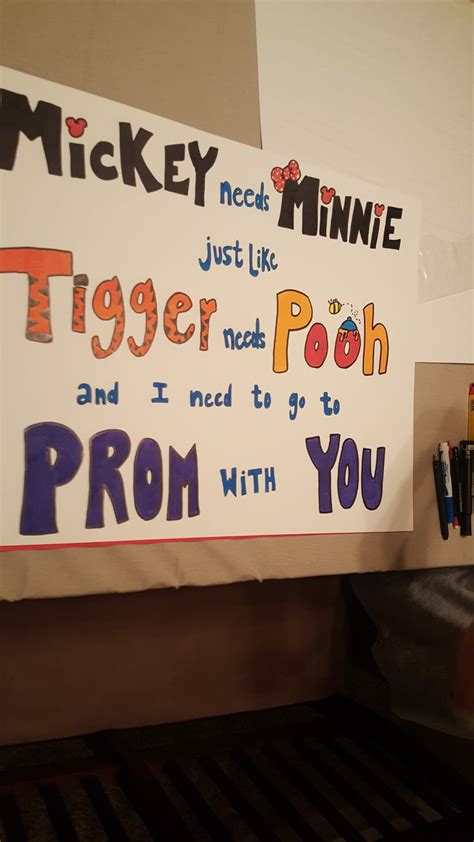 MicKEY needs MiNNiE
just like
Tigger needs Pooh
and I need to go to
PROM WiTH YOU